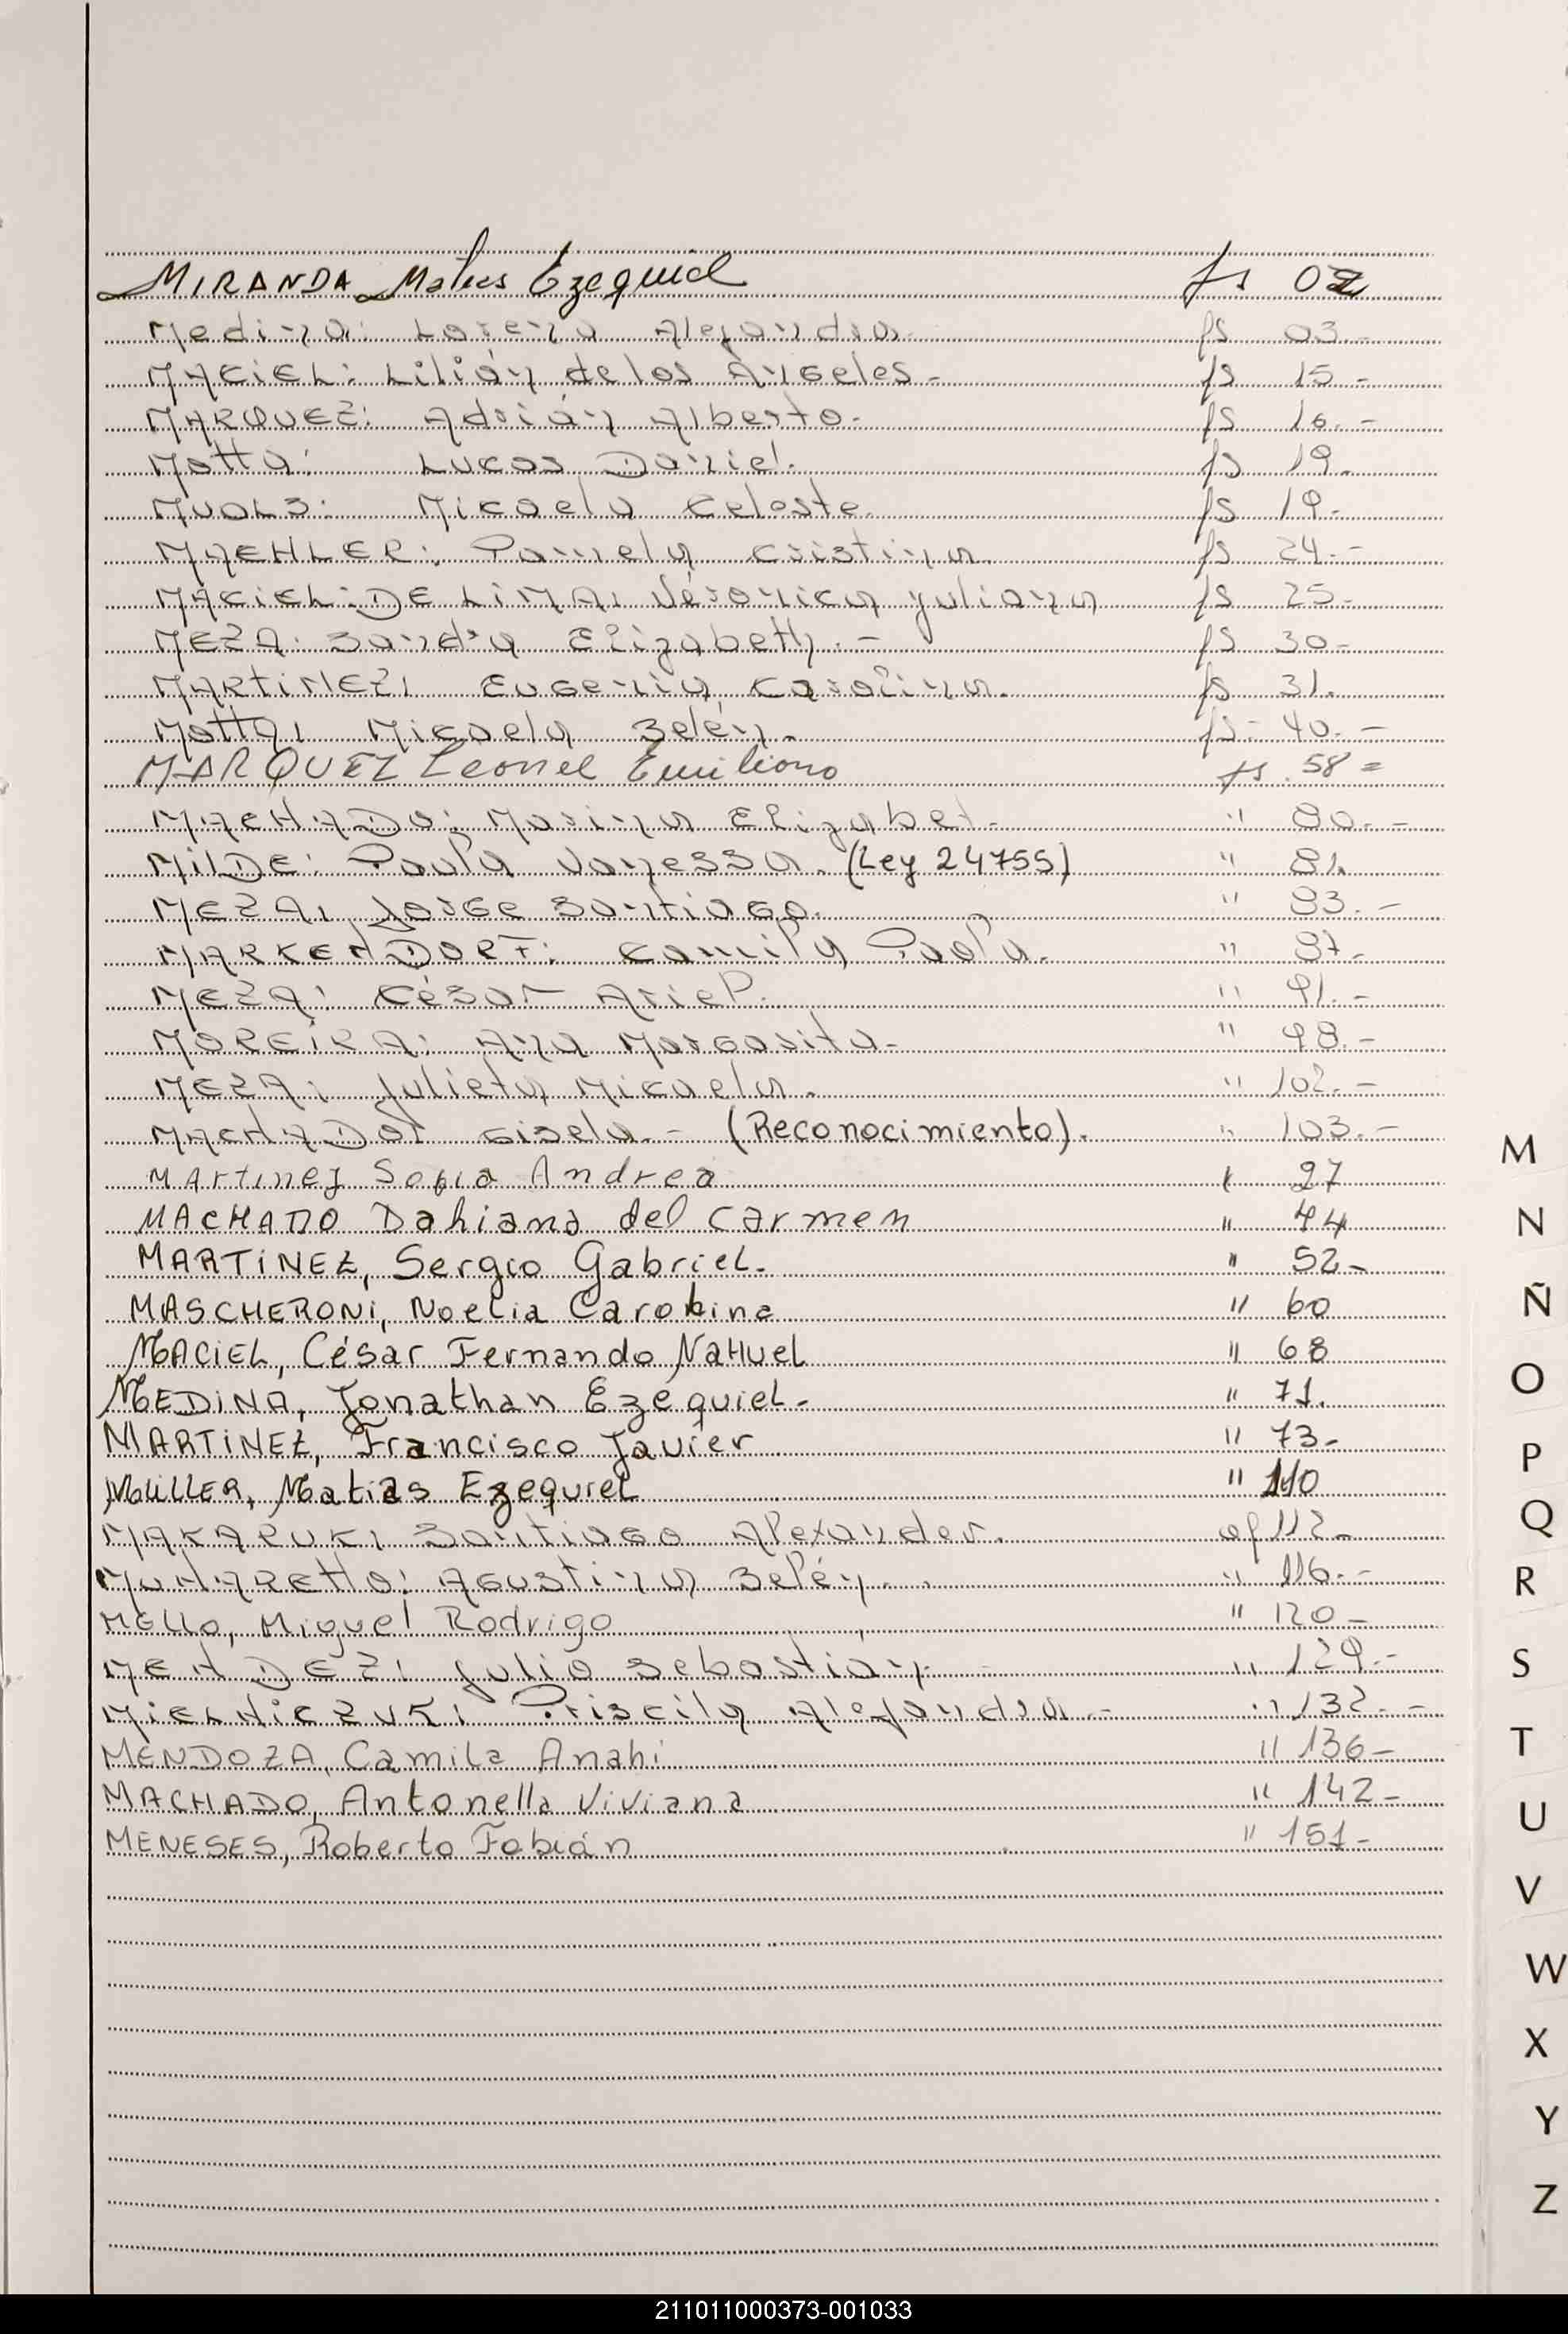 MIRANDA Mateo Ezequiel fs 02
Medina: Lorena Alejandra. fs 03.-
MACIEL: Lilián de los Angeles.- fs 15.-
MARQUEZ: Adrián Alberto.- fs 16.-
Motta: Lucas Daniel. fs 19.
Micaela Celeste. fs 19.-
MAEHLER: Pamela Cristina. fs 24.-
MACIEL DE LIMA: Véronica Juliana fs 25.-
MEZA: Sandra Elizabeth.- fs 30.-
MARTiNEZ: Eugenia Carolina. fs 31.
Motta: Micaela Belén. fs- 40.-
MARQUEZ Leonel Emiliano fs. 58=
MACHADO: Marina Elizabet.- " 80.-
MilDE: Paula Vanessa. (Ley 24755) " 81.
MEZA: Jorge Santiago. " 83.-
MARKENDORF: Camila Paola. " 87.-
MEZA: César Ariel. " 91.-
MOREiRA: Ana Margarita.- " 98.-
MEZA: Julieta Micaela. " 102.-
MACHADO: Gisela.- (Reconocimiento). " 103.-
MARtinez Sofia Andrea " 27
MACHADO Dahiana del Carmen " 44
MARTiNEZ, Sergio Gabriel. " 52-
MASCHERONi, Noelia Carolina " 60
MACIEL, César Fernando NaHuel " 68
MEDiNA, Jonathan Ezequiel- " 71.
MARTiNEZ, Francisco Javier " 73-
MüLLER, Matias Ezequiel " 110
MAKARUK: Santiago Alexander. 112-
Agustina Belén. " 116.-
MELLO, Miguel Rodrigo " 120-
MENDEZ: Julio Sebastián.- " 129.-
MiELNiCZUK: Priscila Alejandra.- " 132.-
MENDOZA, Camila Anahi " 136-
MACHADO, Antonella Viviana " 142-
MENESES, Roberto Fabián " 151-
M
N
Ñ
O
P
Q
R
S
T
U
V
W
X
Y
Z
211011000373-001033